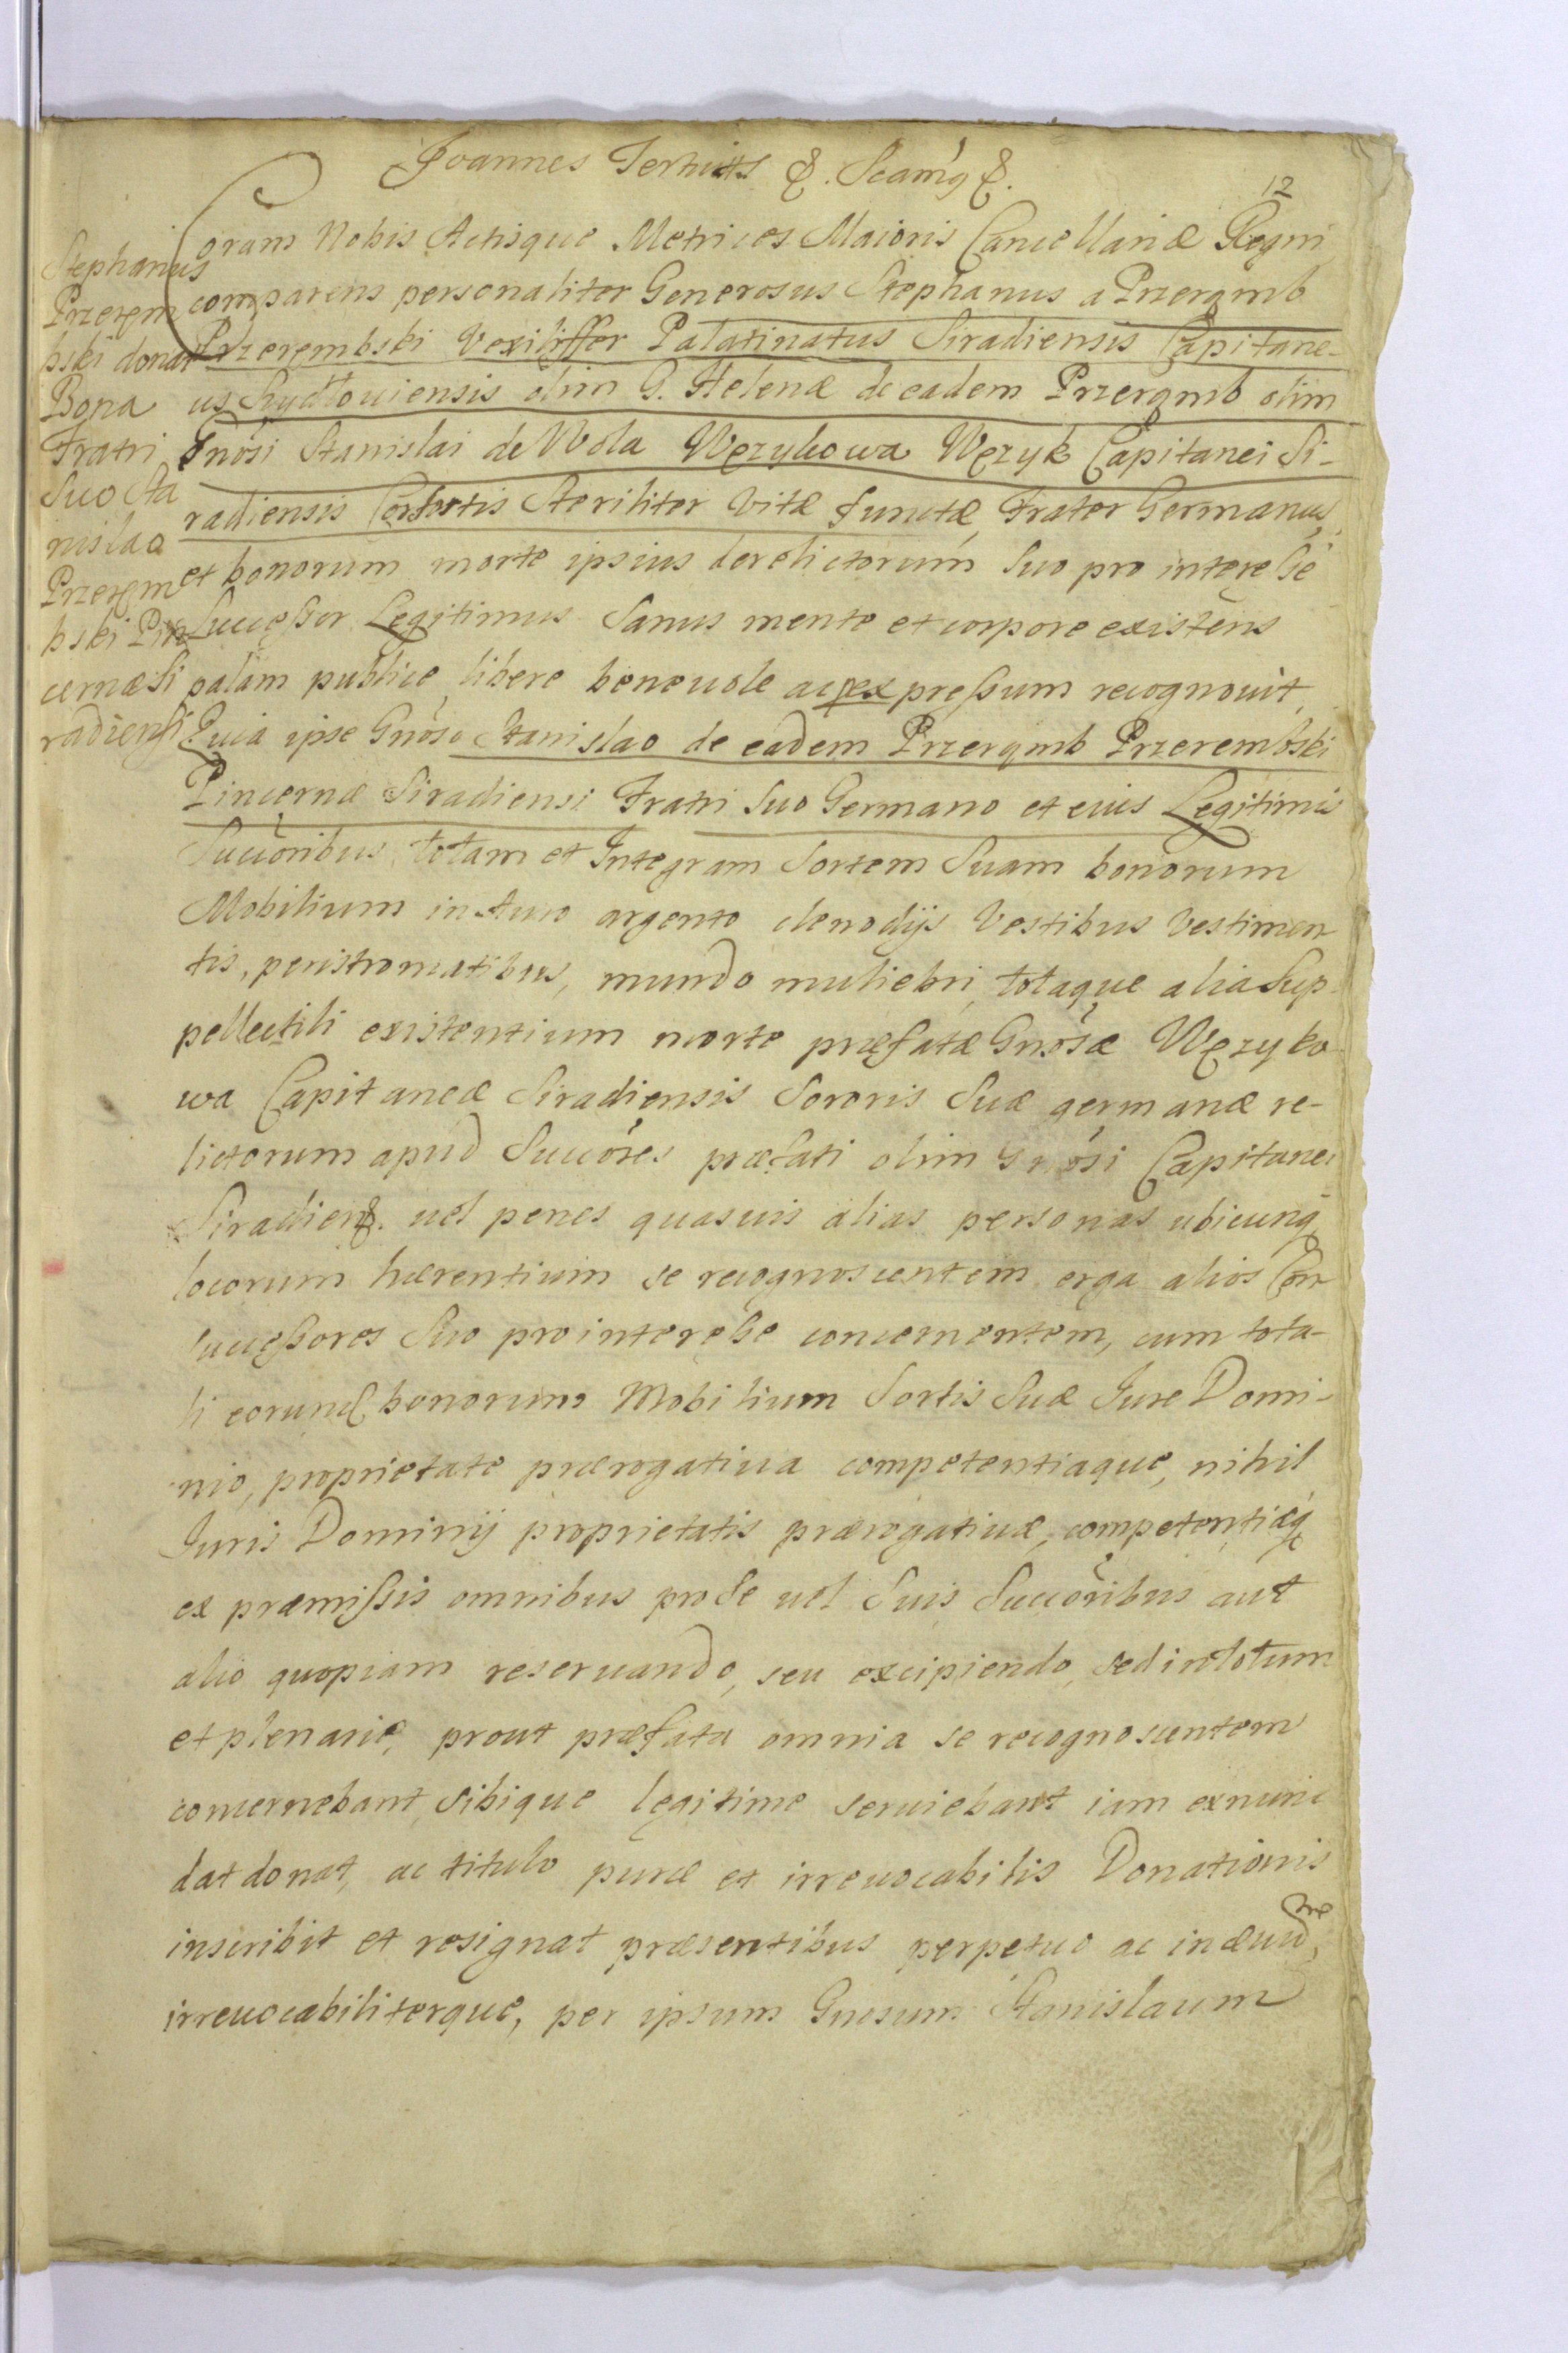 Joannes Tertius &. Scãmg &.
12
Stephanus
Przerem
bski donat
Bona
Fratri
Suo Sta
nislao
Przerem
bski Pin
cernæ Si
radiensi
Coram Nobis Actisque Metrices Maioris Cancellariæ Regni
comparens personaliter Generosus Stephanus a Przeręmb
Przerembski Vexiliffer Palatinatus Siradiensis Capitane-
us olim G. Helenæ de eadem Przeręmb olim
Gnosi Stanislai de Wola Wężykowa Wężyk Capitanei Si-
radiensis Consortis Steriliter Vitæ functæ Frater Germanus,
et bonorum morte ipsius derelictorum Suo pro interesse
Successor Legitimus Sanus mente et corpore existens
palam publice libere beneuole ac per expressum recognouit,
Quia ipse Gnoso Stanislao de eadem Przeręmb Przerembski
Pincernæ Siradiensi Fratri Suo Germano et eius Legitimis
Succoribus totam et Integram Sortem Suam bonorum
Mobilium in Auro argento clenodijs Vestibus Vestimen
tis, peristromatibus, mundo muliebri, totaque alia Sup-
pellectili existentium morte præfatæ Gnosæ Wężyko
wa Capitaneæ Siradiensis Sororis Suæ germanæ re-
lictorum apud Succores præfati olim Gnosi Capitanei
Siradien&. uel penes quasuis alias personas ubicunq
locorum hærentium se recognoscentem erga alios Con
successores Suo pro interesse concernentem, cum tota-
li eorund bonorum Mobilium Sortis Suæ Jure Domi-
nio, proprietate prærogatiua competentiaque, nihil
Juris Dominij proprietatis prærogatiuæ, competentiæq
ex præmissis omnibus pro Se uel Suis Succoribus aut
alio quopiam reseruando, seu excipiendo, sed in totum
et plenarie, prout præfata omnia se recognoscentem
concernebant, sibique legitime seruiebant iam ex nunc
dat donat, ac titulo puræ et irreuocabilis Donationis
inscribit et resignat præsentibus perpetuo ac in æuũ,
irreuocabiliterque, per ipsum Gnosum Stanislaum